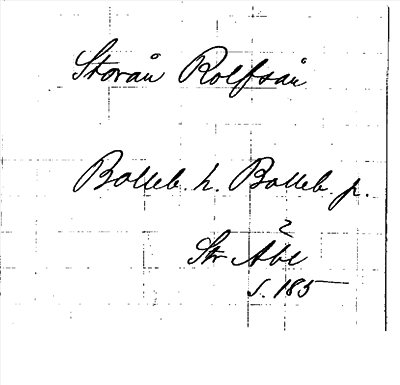 Storån Rolfsån
Bolleb. h. Bolleb. p.
2
Str Åbl
s. 185